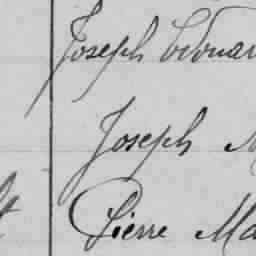 Joseph Edouar
Joseph M
Pierre Ma